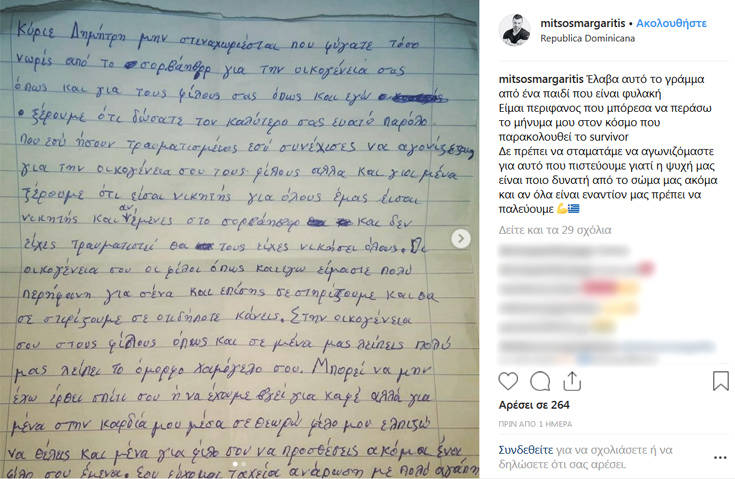 Κύριε Δημήτρη μην στεναχωριέσται που φύγατε τόσο
νωρίς από το σορβάηβορ για την οικογένειά σας
όπως και για τους φίλους σας όπως και εγώ
ξέρουμε ότι δώσατε τον καλύτερο σας ευατό παρόλο
που εσύ ήσουν τραυματισμένος εσύ συνέχισες να αγωνίζεσαι
για την οικογένεια σου τους φίλους αλλα και για μένα
ξέρουμε ότι είσαι νικητής για όλους έμας είσαι
νικητής και αν έμενες στο σορβάηβορ και δεν
είχες τραυματιστεί θα τους είχες νικήσει όλους. Οι
οικογένεια σου οι φίλοι όπως και εγω είμαστε πολύ
περήφανη για σένα και επίσης σε στηρίζουμε και θα
σε στιρίξουμε σε οτιδήποτε κάνεις. Στην οικογένεια
σου στους φίλους όπως και σε μένα μας λείπεις πολύ
μας λείπει το όμορφο χαμόγελο σου. Μπορεί να μην
έχω έρθει σπίτι σου ή να έχουμε βγεί για καφέ αλλά για
μένα στην καρδιά μου μέσα σε θεωρώ φίλο μου ελπίζω
να θέλεις και μένα για φίλο σου να προσθέσεις ακόμα έναν
φίλο σου έμενα. Σου εύχομαι ταχεία ανάρωση με πολύ αγάπη
mitsosmargaritis • Ακολουθήστε
Republica Dominicana
mitsosmargaritis Έλαβα αυτό το γράμμα
από ένα παιδί που είναι φυλακή
Είμαι περιφανος που μπόρεσα να περάσω
το μήνυμα μου στον κόσμο που
παρακολουθεί το survivor
Δε πρέπει να σταματάμε να αγωνιζόμαστε
για αυτό που πιστεύουμε γιατί η ψυχή μας
είναι ποιο δυνατή από το σώμα μας ακόμα
και αν όλα είναι εναντίον μας πρέπει να
παλεύουμε 💪🇬🇷
Δείτε και τα 29 σχόλια
Αρέσει σε 264
ΠΡΙΝ ΑΠΌ 1 ΗΜΈΡΑ
Συνδεθείτε για να σχολιάσετε ή να
δηλώσετε ότι σας αρέσει.